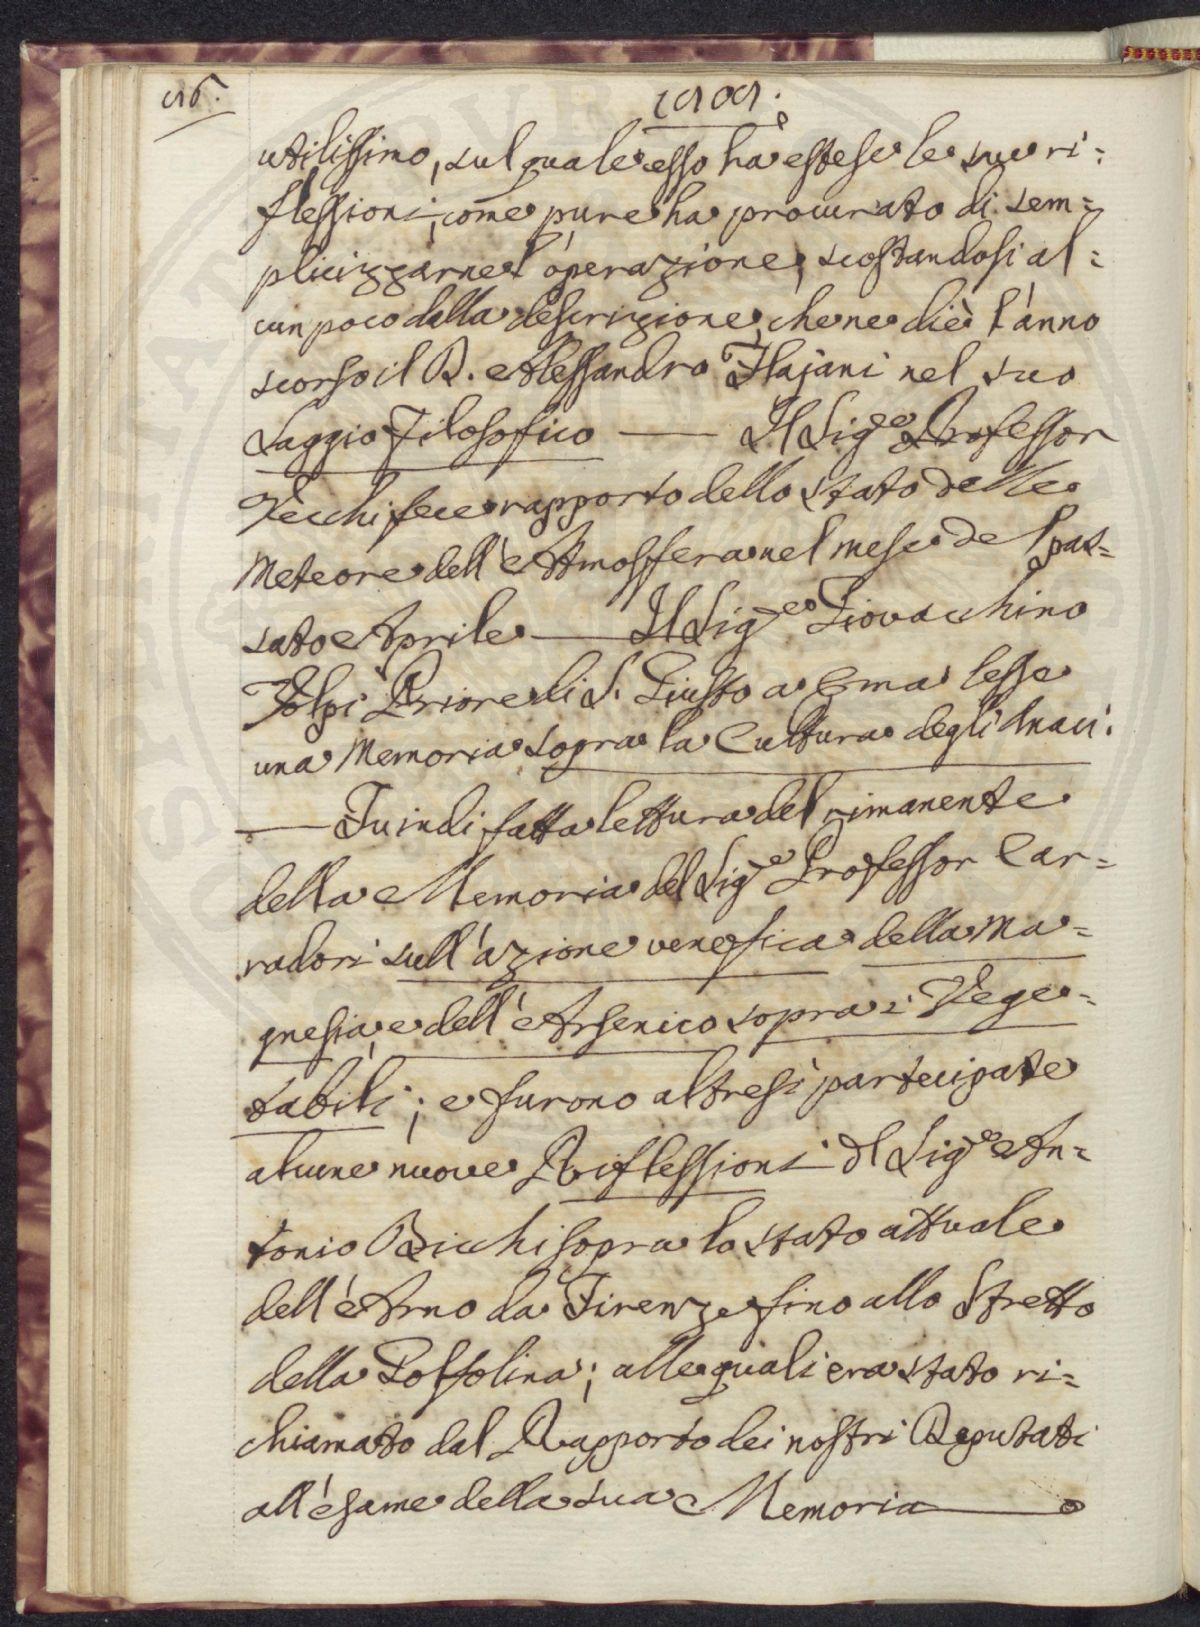 utilissimo, sul quale esso ha estese le sue ri=
flessioni; come pure ha procurato di sem=
plicizzarne l'operazione, scostandosi al=
cun poco dalla descrizione, che ne diè l'anno
scorso il D. Alessandro Flajani nel suo
Saggio Filosofico — Il Sig.e Professor
Vecchi fece rapporto dello stato delle
Meteore dell'Atmosfera nel mese del pas=
sato Aprile — Il Sig.e Giovacchino
Volpi Priore di S. Giusto a Ema lesse
una Memoria sopra la Cultura degli Anaci.
— Fu indi fatta lettura del rimanente
della Memoria del Sig.e Professor Car=
radori sull'azione venefica della Ma=
gnesia, e dell'Arsenico sopra i Vege=
tabili; e furono altresì partecipate
alcune nuove Riflessioni del Sig.e An=
tonio Bicchi sopra lo stato attuale
dell'Arno da Firenze fino allo Stretto
della Golfolina; alle quali era stato ri=
chiamato dal Rapporto dei nostri Deputati
all'esame della sua Memoria —